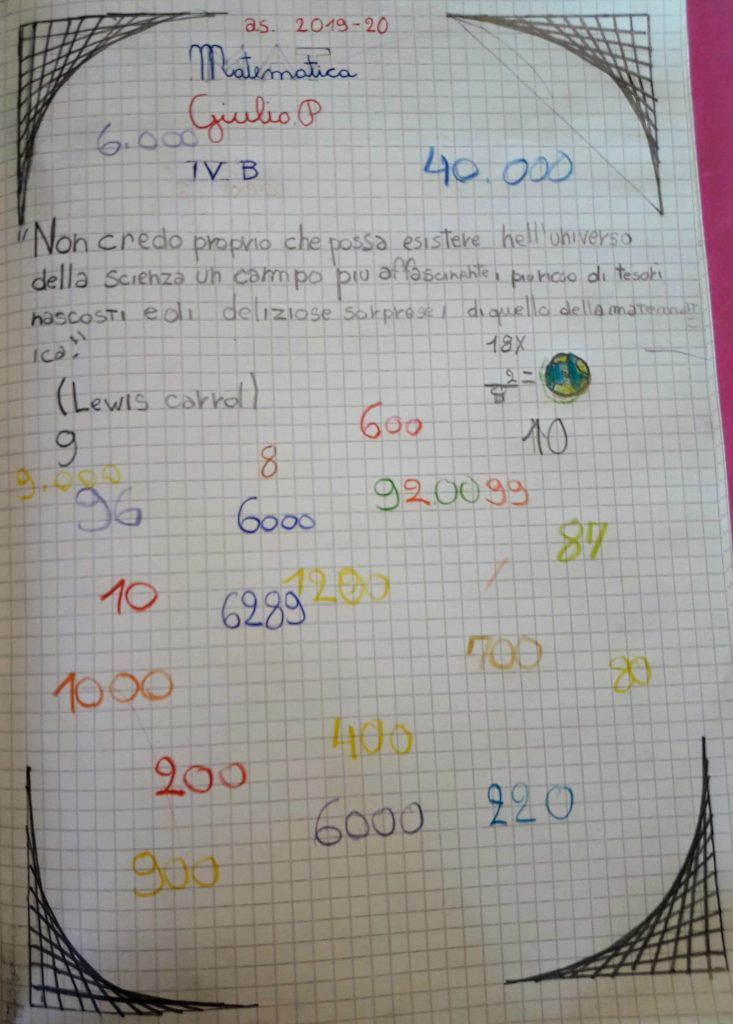 as. 2019-20
Matematica
Giulio. P
6.000
IV. B
40.000
"Non credo proprio che possa esistere nell'universo
della scienza un campo più affascinante, più ricco di tesori
nascosti e di deliziose sorprese, di quello della matemat
ica."
18x
2 =
8
(Lewis carrol)
600
10
9
8
9.000
96
6000
920099
87
10
6289
1200
700
80
1000
400
200
6000
220
900